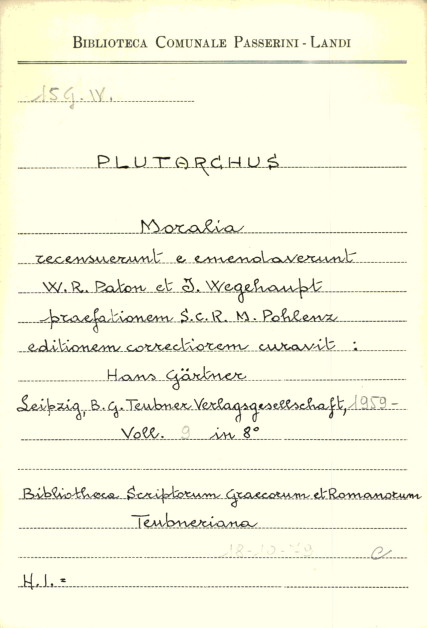 BIBLIOTECA COMUNALE PASSERINI - LANDI
15G.IV.
PLUTARCHUS
Moralia
recensuerunt e emendaverunt
W.R. Paton et J. Wegehaupt
praefationem S.C.R. M. Pohlenz
editionem correctiorem curavit :
Hans Gärtner
Leipzig, B.G. Teubner Verlagsgesellschaft, 1959-
Voll. 9 in 8°
Bibliotheca Scriptorum Graecorum et Romanorum
Teubneriana
18-10-79 C
H.I. =